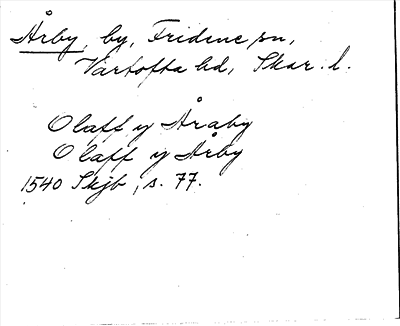 Årby, by, Fridene sn,
Vartofta hd, Skar. l.
Olaff y Åraby
Olaff y Årby
1540 Skjb, s. 77.